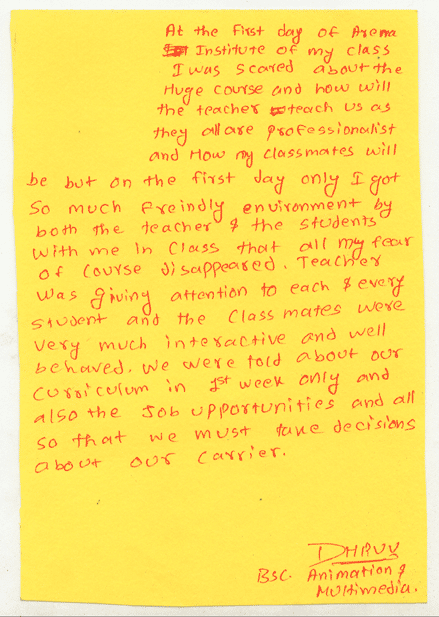 At the first day of Arena
Institute of my class
I was scared about the
Huge course and how will
the teacher teach us as
they all are professionalist
and How my classmates will
be but on the first day only I got
so much freindly environment by
both the teacher & the students
with me in class that all my fear
of course disappeared. Teacher
was giving attention to each & every
student and the class mates were
very much interactive and well
behaved. We were told about our
curriculum in 1st week only and
also the Job upportunities and all
so that we must take decisions
about our carrier.
DHRUV
BSC. Animation &
Multimedia.